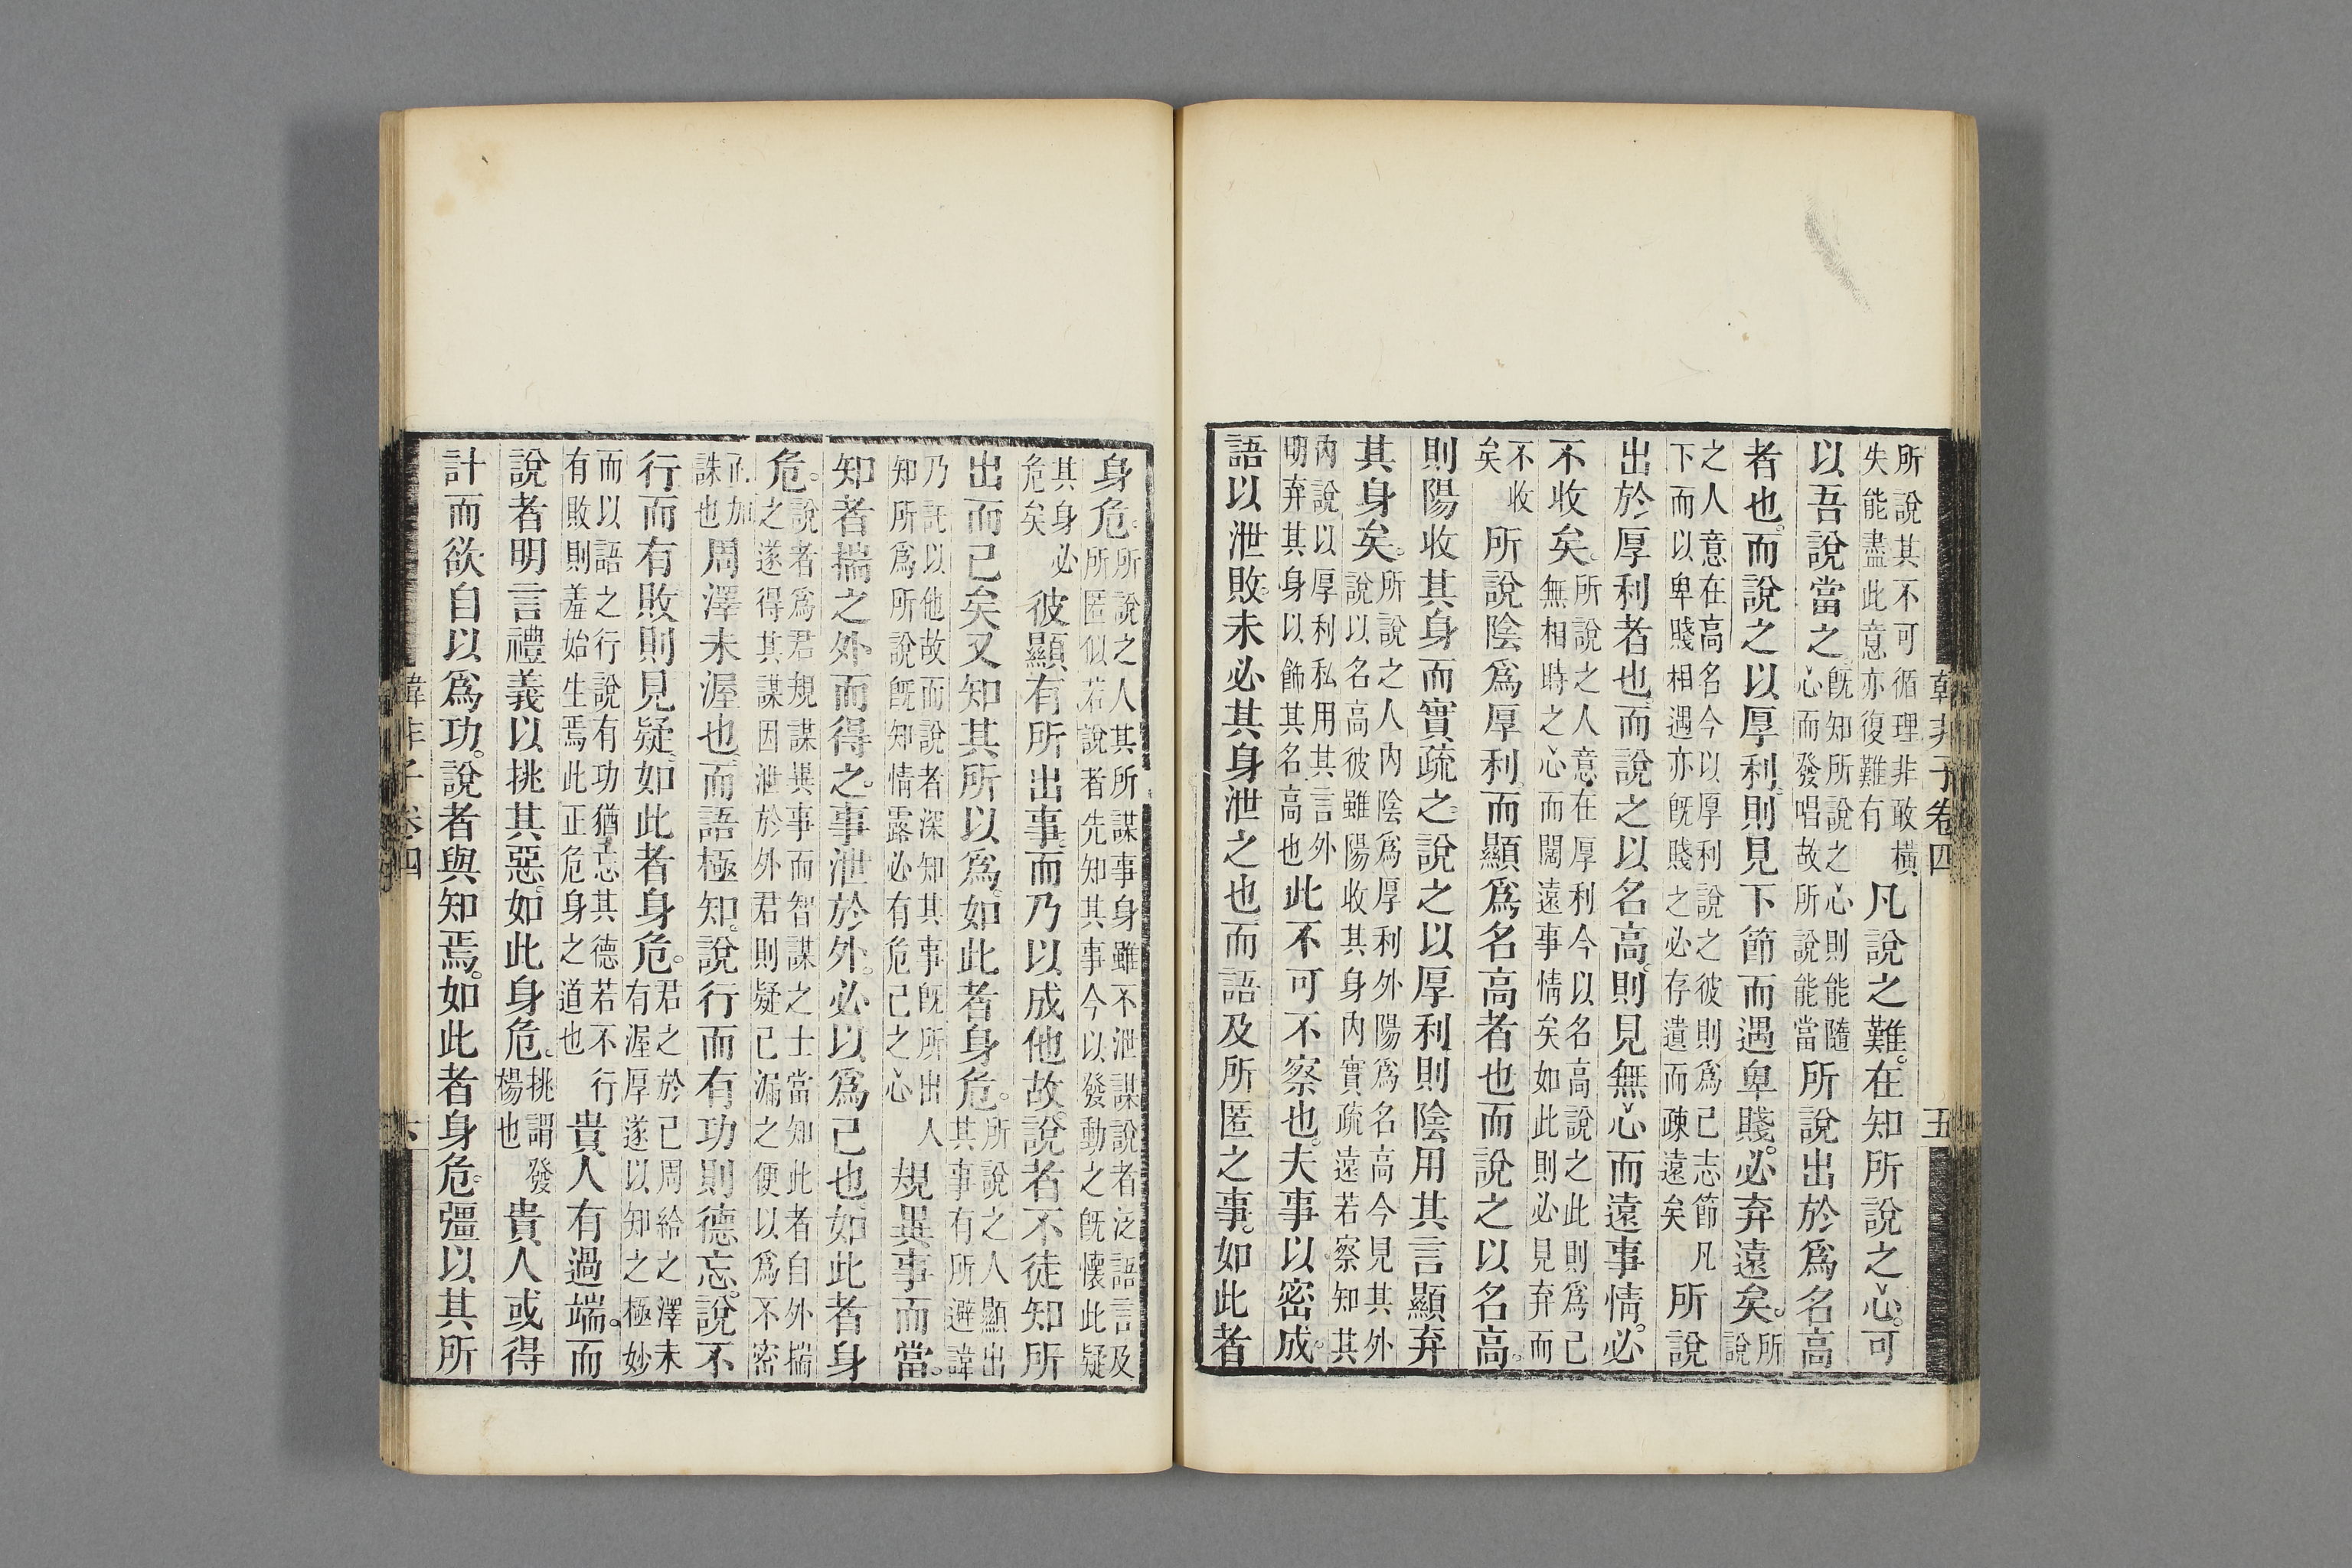 韓非子卷四 五
所說其不可循理非敢橫失能盡此意亦復難有凡說之難。在知所說之心。可
以吾說當之。既知所說之心則能隨心而發唱故所說能當所說出於爲名高
者也。而說之以厚利。則見下節而遇卑賤。必弃遠矣。所說
之人意在高名今以厚利說之彼則爲己志節凡下而以卑賤相遇亦既賤之必存遺而疎遠矣所說
出於厚利者也。而說之以名高。則見無心而遠事情。必
不收矣。所說之人意在厚利今以名高說之此則爲己無相時之心而闊遠事情矣如此則必見弃而
不收矣所說陰爲厚利。而顯爲名高者也而說之以名高。
則陽收其身而實疏之。說之以厚利則陰用其言顯弃
其身矣。所說之人內陰爲厚利外陽爲名高今見其外說以名高彼雖陽收其身內實疏遠若察知其
內說以厚利私用其言外明弃其身以飾其名高也此不可不察也。夫事以密成。
語以泄敗。未必其身泄之也而語及所匿之事。如此者
身危。所說之人其所謀事身雖不泄謀說者泛語言及所匿似若說者先知其事今以發動之既懷此疑
其身必危矣彼顯有所出事。而乃以成他故。說者不徒知所
出而已矣又知其所以爲。如此者身危。所說之人顯出其事有所避諱
乃託以他故而說者深知其事既所出人知所爲所說既知情露必有危己之心規異事而當。
知者揣之外而得之。事泄於外。必以爲己也如此者身
危。說者爲君規謀異事而智謀之士當知此者自外揣之遂得其謀因泄於外君則疑己漏之便以爲不密
加誅也周澤未渥也。而語極知。說行而有功則德忘。說不
行而有敗則見疑。如此者身危。君之於己周給之澤未有渥厚遂以知之極妙
而以語之行說有功猶忘其德若不行有敗則羞始生焉此正危身之道也貴人有過端。而
說者明言禮義以挑其惡。如此身危。挑謂發楊也貴人或得
計而欲自以爲功。說者與知焉。如此者身危。彊以其所
韓非子卷四